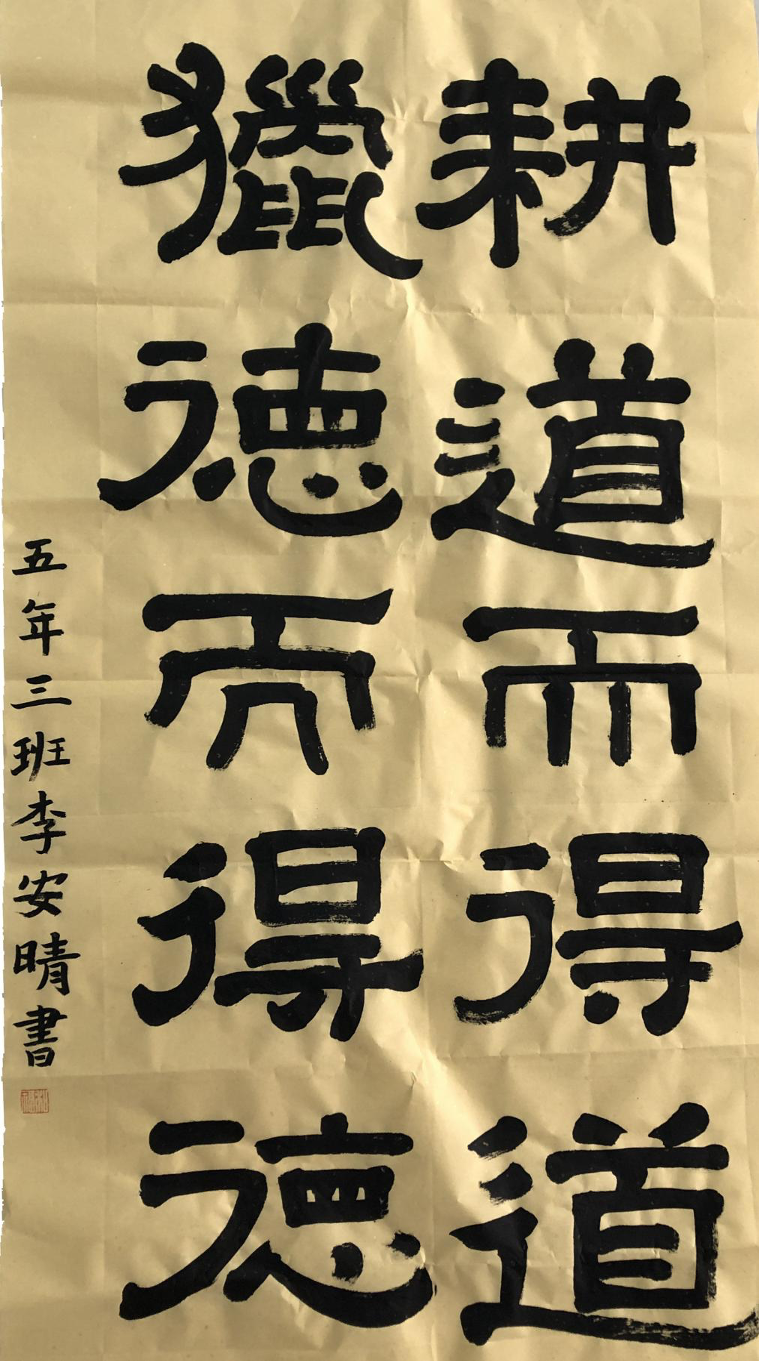 耕道而得道
獵德而得德
五年三班李安晴書